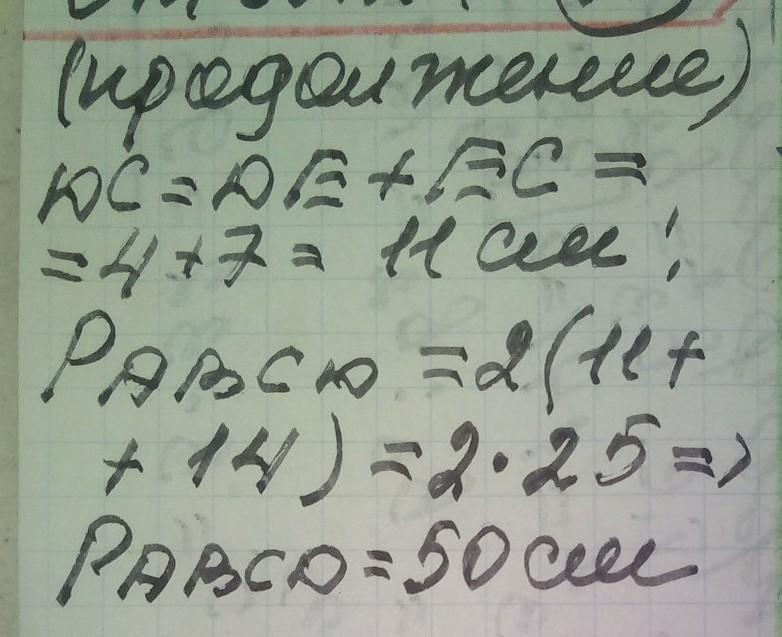 (продолжение)
DC = DE + EC =
= 4 + 7 = 11 см;
PABCD = 2(11 +
+ 14) = 2 · 25 =>
PABCD = 50 см